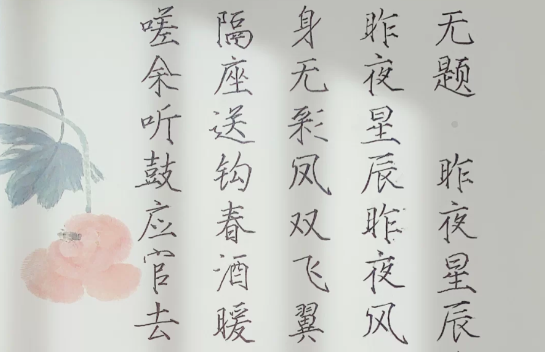 无题 昨夜星辰
昨夜星辰昨夜风
身无彩凤双飞翼
隔座送钩春酒暖
嗟余听鼓应官去